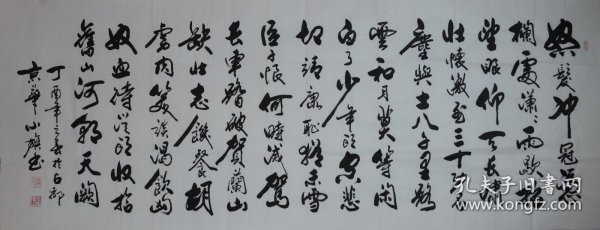 怒髮冲冠憑
欄處瀟瀟雨歇抬
望眼仰天長嘯
壯懷激烈三十
塵與土八千里路
雲和月莫等閑
白了少年頭空悲
切靖康恥猶未雪
臣子恨何時滅駕
長車踏破賀蘭山
缺壯志飢餐胡
虜肉笑談渴飲匈
奴血待從頭收拾
舊山河朝天闕
丁酉年之春於古都
京華小 書
孔夫子旧书网
book.kongfz.com